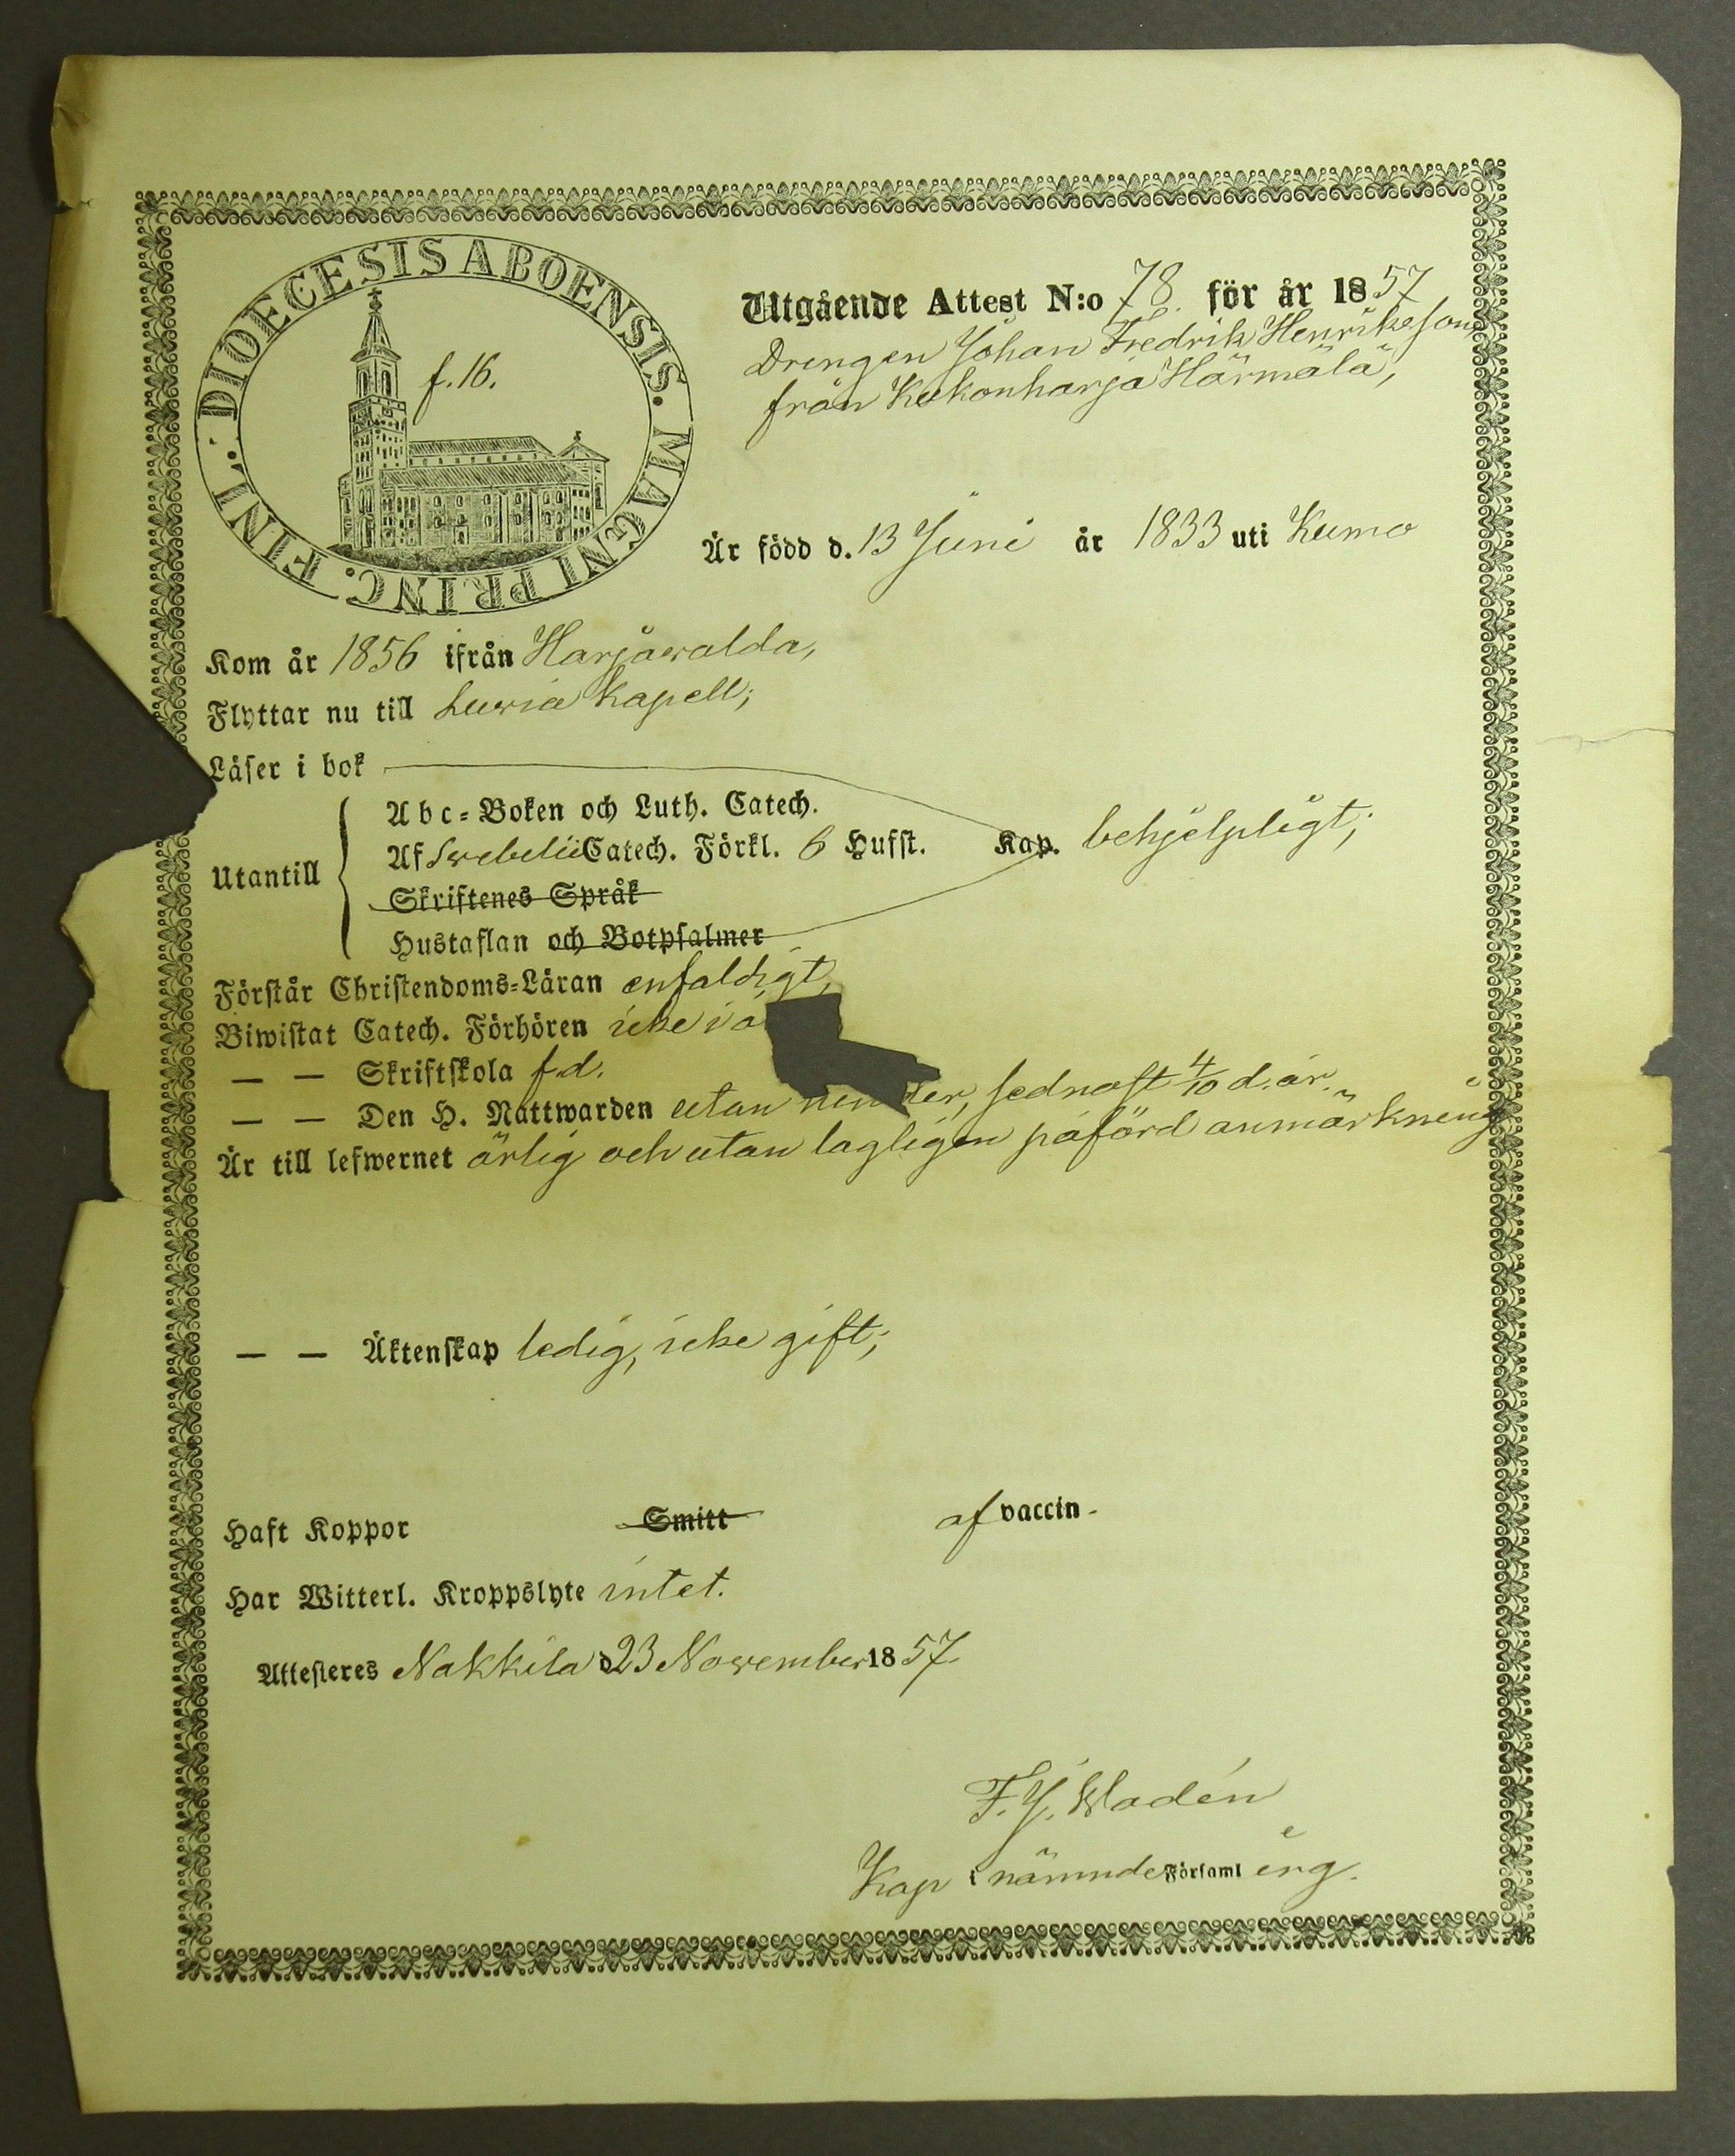 DIOECESIS ABOENSIS. MAGNI PRINC. FINL:
f. 16.
Utgående Attest N:o 78. för år 1857
Drengen Johan Fredrik Henriksson
från Kukonharja Härmälä,
Är född d. 13 Juni år 1833 uti Kumo
Kom år 1856 ifrån Harjawalda,
Flyttar nu till Luvia Kapell;
Läser i bok
Utantill
Abc-Boken och Luth. Catech.
Af Swebelii Catech. Förkl. 6 Hufst. Kap. behjelpligt;
Skriftenes Språk
Hustaflan och Botpsalmer
Förstår Christendoms-Läran enfaldigt,
Biwistat Catech. Förhören icke i
— — Skriftskola f.d.
— — Den H. Nattwarden utan sednast 4/10 d. år.
Är till lefwernet ärlig och utan lagligen påförd anmärkning
— — Äktenskap ledig, icke gift;
Haft Koppor Smitt af vaccin-
Har Witterl. Kroppslyte intet.
Attesteres Nakkila d 23 November 1857.
F. J. Wadén
Kap i nämnde Församl ing.